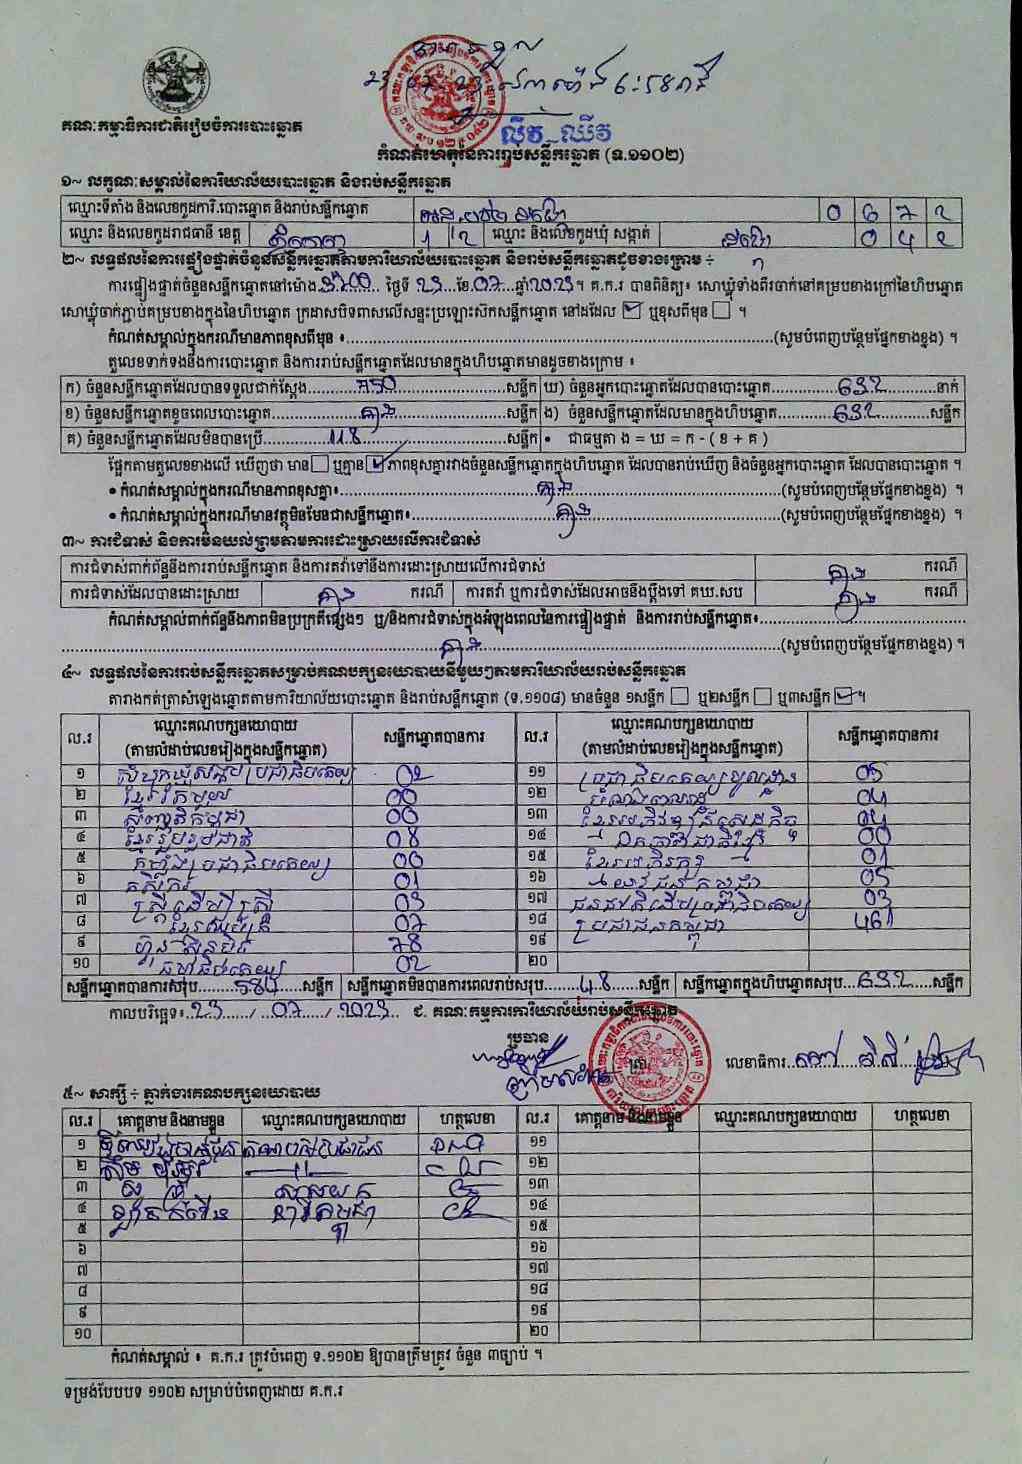 គណៈកម្មាធិការជាតិរៀបចំការបោះឆ្នោត
លឹវ ឈីវ
កំណត់ហេតុនៃការរាប់សន្លឹកឆ្នោត (ទ.១១០២)
១~ លក្ខណៈសម្គាល់នៃការិយាល័យបោះឆ្នោត និងរាប់សន្លឹកឆ្នោត
ឈ្មោះទីតាំង និងលេខកូដការិ.បោះឆ្នោត និងរាប់សន្លឹកឆ្នោត 0 6 7 2
ឈ្មោះ និងលេខកូដរាជធានី ខេត្ត 1 2 ឈ្មោះ និងលេខកូដឃុំ សង្កាត់ 0 4 2
២~ លទ្ធផលនៃការផ្ទៀងផ្ទាត់ចំនួនសន្លឹកឆ្នោតតាមការិយាល័យបោះឆ្នោត និងរាប់សន្លឹកឆ្នោតដូចខាងក្រោម ÷
ការផ្ទៀងផ្ទាត់ចំនួនសន្លឹកឆ្នោតនៅម៉ោង ថ្ងៃទី 23 ខែ 07 ឆ្នាំ 2023 ។ គ.ក.រ បានពិនិត្យ៖ សោឃ្លុំទាំងពីរចាក់នៅគម្របខាងក្រៅនៃហិបឆ្នោត
សោឃ្លុំចាក់ភ្ជាប់គម្របខាងក្នុងនៃហិបឆ្នោត ក្រដាសបិទពាសលើសន្ទះប្រឡោះស៊កសន្លឹកឆ្នោត នៅដដែល ☑ ឬខុសពីមុន ☐ ។
កំណត់សម្គាល់ក្នុងករណីមានភាពខុសពីមុន ៖ (សូមបំពេញបន្ថែមផ្នែកខាងខ្នង) ។
តួលេខទាក់ទងនឹងការបោះឆ្នោត និងការរាប់សន្លឹកឆ្នោតដែលមានក្នុងហិបឆ្នោតមានដូចខាងក្រោម ៖
ក) ចំនួនសន្លឹកឆ្នោតដែលបានទទួលជាក់ស្តែង 750 សន្លឹក ឃ) ចំនួនអ្នកបោះឆ្នោតដែលបានបោះឆ្នោត 632 នាក់
ខ) ចំនួនសន្លឹកឆ្នោតខូចពេលបោះឆ្នោត គ្មាន សន្លឹក ង) ចំនួនសន្លឹកឆ្នោតដែលមានក្នុងហិបឆ្នោត 632 សន្លឹក
គ) ចំនួនសន្លឹកឆ្នោតដែលមិនបានប្រើ 118 សន្លឹក • ជាធម្មតា ង = ឃ = ក - ( ខ + គ )
ផ្អែកតាមតួលេខខាងលើ ឃើញថា មាន ☐ ឬគ្មាន ☑ ភាពខុសគ្នារវាងចំនួនសន្លឹកឆ្នោតក្នុងហិបឆ្នោត ដែលបានរាប់ឃើញ និងចំនួនអ្នកបោះឆ្នោត ដែលបានបោះឆ្នោត ។
• កំណត់សម្គាល់ក្នុងករណីមានភាពខុសគ្នា៖ គ្មាន (សូមបំពេញបន្ថែមផ្នែកខាងខ្នង) ។
• កំណត់សម្គាល់ក្នុងករណីមានវត្ថុមិនមែនជាសន្លឹកឆ្នោត៖ គ្មាន (សូមបំពេញបន្ថែមផ្នែកខាងខ្នង) ។
៣~ ការជំទាស់ និងការមិនយល់ព្រមតាមការដោះស្រាយលើការជំទាស់
ការជំទាស់ពាក់ព័ន្ធនឹងការរាប់សន្លឹកឆ្នោត និងការតវ៉ាទៅនឹងការដោះស្រាយលើការជំទាស់ គ្មាន ករណី
ការជំទាស់ដែលបានដោះស្រាយ គ្មាន ករណី ការតវ៉ា ឬការជំទាស់ដែលអាចនឹងប្តឹងទៅ គឃ.សប គ្មាន ករណី
កំណត់សម្គាល់ពាក់ព័ន្ធនឹងភាពមិនប្រក្រតីផ្សេងៗ ឬ/និងការជំទាស់ក្នុងអំឡុងពេលនៃការផ្ទៀងផ្ទាត់ និងការរាប់សន្លឹកឆ្នោត៖
គ្មាន (សូមបំពេញបន្ថែមផ្នែកខាងខ្នង) ។
៤~ លទ្ធផលនៃការរាប់សន្លឹកឆ្នោតសម្រាប់គណបក្សនយោបាយនីមួយៗតាមការិយាល័យរាប់សន្លឹកឆ្នោត
តារាងកត់ត្រាសំឡេងឆ្នោតតាមការិយាល័យបោះឆ្នោត និងរាប់សន្លឹកឆ្នោត (ទ.១១០៨) មានចំនួន ១សន្លឹក ☐ ឬ២សន្លឹក ☐ ឬ៣សន្លឹក ☑ ។
ល.រ ឈ្មោះគណបក្សនយោបាយ (តាមលំដាប់លេខរៀងក្នុងសន្លឹកឆ្នោត) សន្លឹកឆ្នោតបានការ ល.រ ឈ្មោះគណបក្សនយោបាយ (តាមលំដាប់លេខរៀងក្នុងសន្លឹកឆ្នោត) សន្លឹកឆ្នោតបានការ
១ សំបុកឃ្មុំសង្គមប្រជាធិបតេយ្យ 02 ១១ ប្រជាធិបតេយ្យមូលដ្ឋាន 05
២ ខ្មែររីកចម្រើន 00 ១២ 04
៣ សញ្ជាតិកម្ពុជា 00 ១៣ ខ្មែរអភិវឌ្ឍន៍សេដ្ឋកិច្ច 04
៤ ខ្មែររួបរួមជាតិ 08 ១៤ ឯកភាពជាតិខ្មែរ 00
៥ កម្លាំងប្រជាធិបតេយ្យ 00 ១៥ ខ្មែរអភិរក្ស 01
៦ កសិករ 01 ១៦ យុវជនកម្ពុជា 05
៧ ស្ត្រីដើម្បីស្ត្រី 03 ១៧ ជនជាតិដើមប្រជាធិបតេយ្យ 03
៨ ខ្មែរឈប់ក្រ 07 ១៨ ប្រជាជនកម្ពុជា 461
៩ ហ្វ៊ុនស៊ិនប៉ិច 78 ១៩
១០ ធម្មាធិបតេយ្យ 02 ២០
សន្លឹកឆ្នោតបានការសរុប 584 សន្លឹក សន្លឹកឆ្នោតមិនបានការពេលរាប់សរុប 48 សន្លឹក សន្លឹកឆ្នោតក្នុងហិបឆ្នោតសរុប 632 សន្លឹក
កាលបរិច្ឆេទ៖ 23 / 07 / 2023 ជ. គណៈកម្មការការិយាល័យរាប់សន្លឹកឆ្នោត
ប្រធាន
លេខាធិការ
៥~ សាក្សី ÷ ភ្នាក់ងារគណបក្សនយោបាយ
ល.រ គោត្តនាម និងនាមខ្លួន ឈ្មោះគណបក្សនយោបាយ ហត្ថលេខា ល.រ គោត្តនាម និងនាមខ្លួន ឈ្មោះគណបក្សនយោបាយ ហត្ថលេខា
១ គណបក្សប្រជាជន ១១
២ ១២
៣ ១៣
៤ ១៤
៥ ១៥
៦ ១៦
៧ ១៧
៨ ១៨
៩ ១៩
១០ ២០
កំណត់សម្គាល់ ៖ គ.ក.រ ត្រូវបំពេញ ទ.១១០២ ឱ្យបានត្រឹមត្រូវ ចំនួន ៣ច្បាប់ ។
ទម្រង់បែបបទ ១១០២ សម្រាប់បំពេញដោយ គ.ក.រ